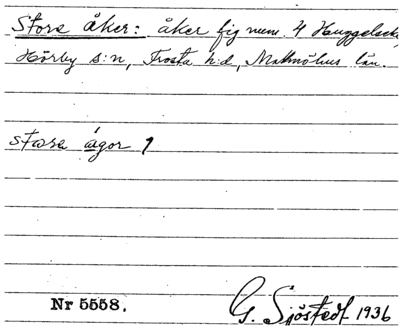 Stora åker: åker fig num. 4 Huggelseke,
Hörby s:n, Frosta h:d, Malmöhus län.
stora ågor 1
Nr 5558.
G. Sjöstedt 1936